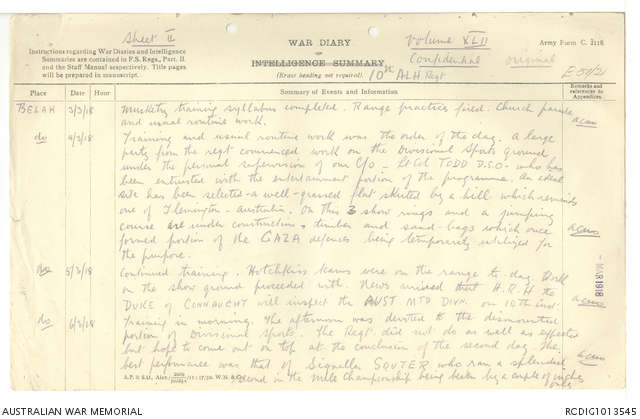 Sheet II
Instructions regarding War Diaries and Intelligence
Summaries are contained in F.S. Regs., Part. II.
and the Staff Manual respectively. Title pages
will be prepared in manuscript.
WAR DIARY
OR
INTELLIGENCE SUMMARY.
(Erase heading not required).
10th ALH Regt
Volume XLII
Confidential original
Army Form C. 2118.
Place Date Hour Summary of Events and Information Remarks and references to Appendices
BELAH 3/3/18 Musketry training syllabus completed. Range practices fired. Church parade
and usual routine work.
do 4/3/18 Training and usual routine work was the order of the day. A large
party from the regt commenced work on the Divisional Sports ground
under the personal supervision of our C/O - Lt Col TODD D.S.O. who has
been entrusted with the entertainment portion of the programme. An ideal
site has been selected - a well-grassed flat skirted by a hill which reminds
one of Flemington - Australia. On this 3 show rings and a jumping
course are under construction, timber and sand-bags which once
formed portion of the GAZA defences being temporarily utilized for
the purpose.
do 5/3/18 Continued training. Hotchkiss teams were on the range to-day. Work
on the show ground proceeded with. News arrived that H.R.H the
DUKE of CONNAUGHT will inspect the AUST MTD DIVN. on 10th inst.
do 6/3/18 Training in morning. The afternoon was devoted to the dismounted
portion of Divisional sports. The Regt. did not do as well as expected
but hope to come out on top at the conclusion of the second day. The
best performance was that of Signaller SOUTER who ran a splendid
second in the Mile Championship being beaten by a couple of inches
only
MAR 1918
AUSTRALIAN WAR MEMORIAL
RCDIG1013545